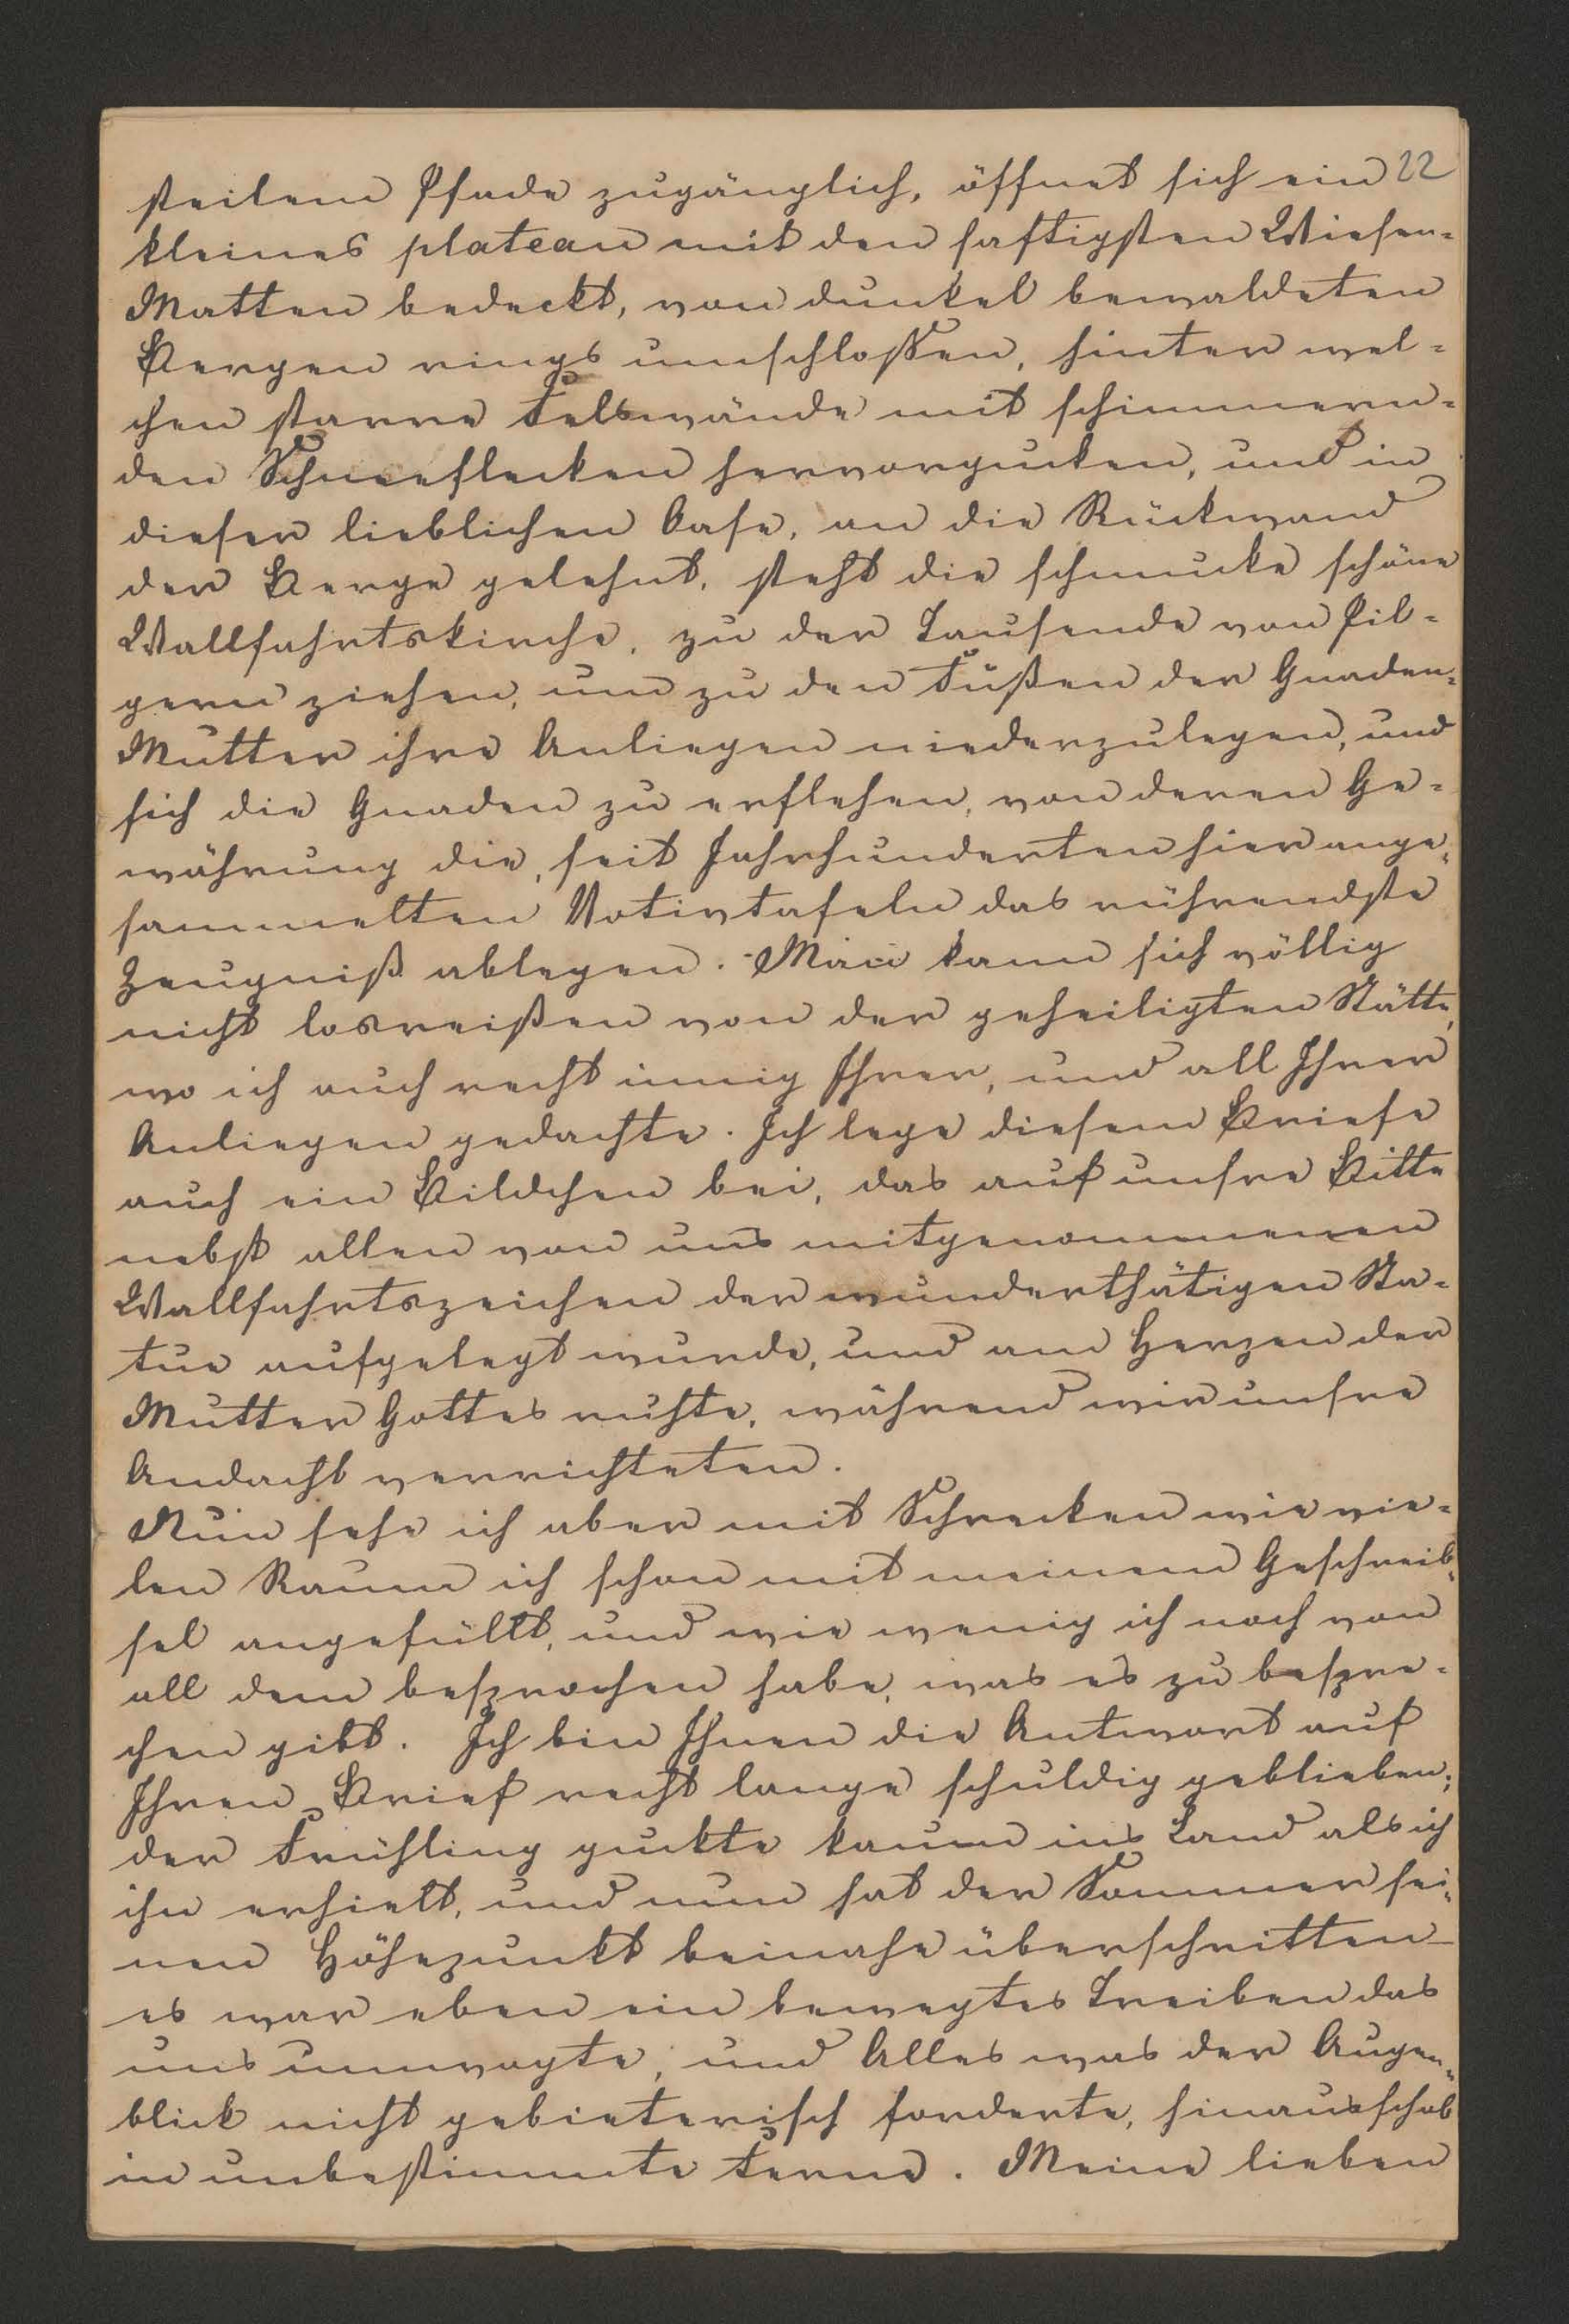 steilem Pfade zugänglich, öffnet sich ein 22
kleines plateau mit den saftigsten Wiesen-
Matten bedeckt, von dunkel bewaldeten
Bergen rings umschloßen, hinter wel-
chen starre Felswände mit schimmern-
den Schneeflecken hervorgucken, und in
dieser lieblichen Oase, an die Rückwand
der Berge gelehnt, steht die schmucke schöne
Wallfahrtskirche, zu der Tausende von Pil-
gern ziehen, um zu den Füßen der Gnaden-
Mutter ihre Anliegen niederzulegen, und
sich die Gnaden zu erflehen, von deren Ge-
währung die, seit Jahrhunderten hier ange-
sammelten Votivtafeln das rührendste
Zeugniß ablegen. Man kann sich völlig
nicht losreißen von der geheiligten Stätte,
wo ich auch recht innig Ihrer, und all Ihrer
Anliegen gedachte. Ich lege diesem Briefe
auch ein Bildchen bei, das auf unsre Bitte
nebst allen von uns mitgenommenen
Wallfahrtszeichen der wunderthätigen Sta-
tue aufgelegt wurde, und am Herzen der
Mutter Gottes ruhte, während wir unsre
Andacht verrichteten.
Nun sehe ich aber mit Schrecken wie vie-
len Raum ich schon mit meinem Geschreib-
sel angefüllt, und wie wenig ich noch von
all dem besprochen habe, was es zu bespre-
chen gibt. Ich bin Ihnen die Antwort auf
Ihren Brief recht lange schuldig geblieben;
der Frühling guckte kaum ins Land als ich
ihn erhielt, und nun hat der Sommer sei-
nen Höhepunkt beinahe überschritten –
es war eben ein bewegtes Treiben das
uns umwogte, und Alles was der Augen-
blick nicht gebieterisch forderte, hinausschob
in unbestimmte Ferne. Meine lieben